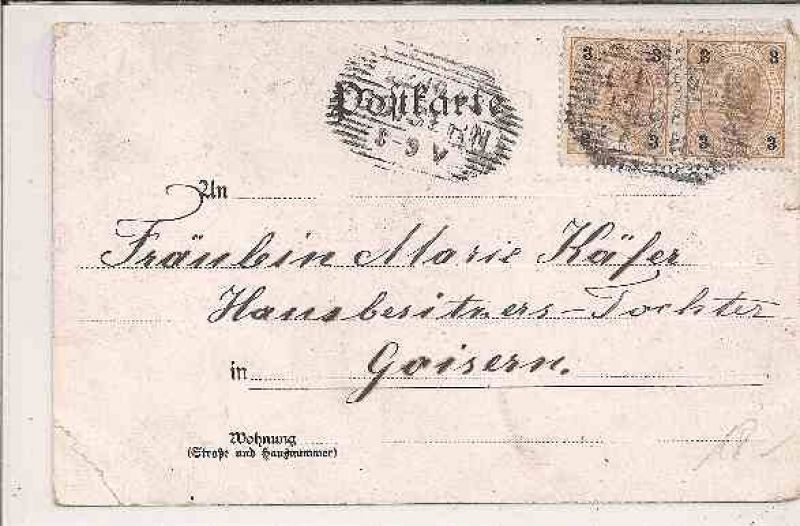 3 3 3 3
Postkarte
An
Fräulein Marie Käfer
Hausbesitzers-Tochter
in Goisern.
Wohnung
(Straße und Hausnummer)
3 3 3 3